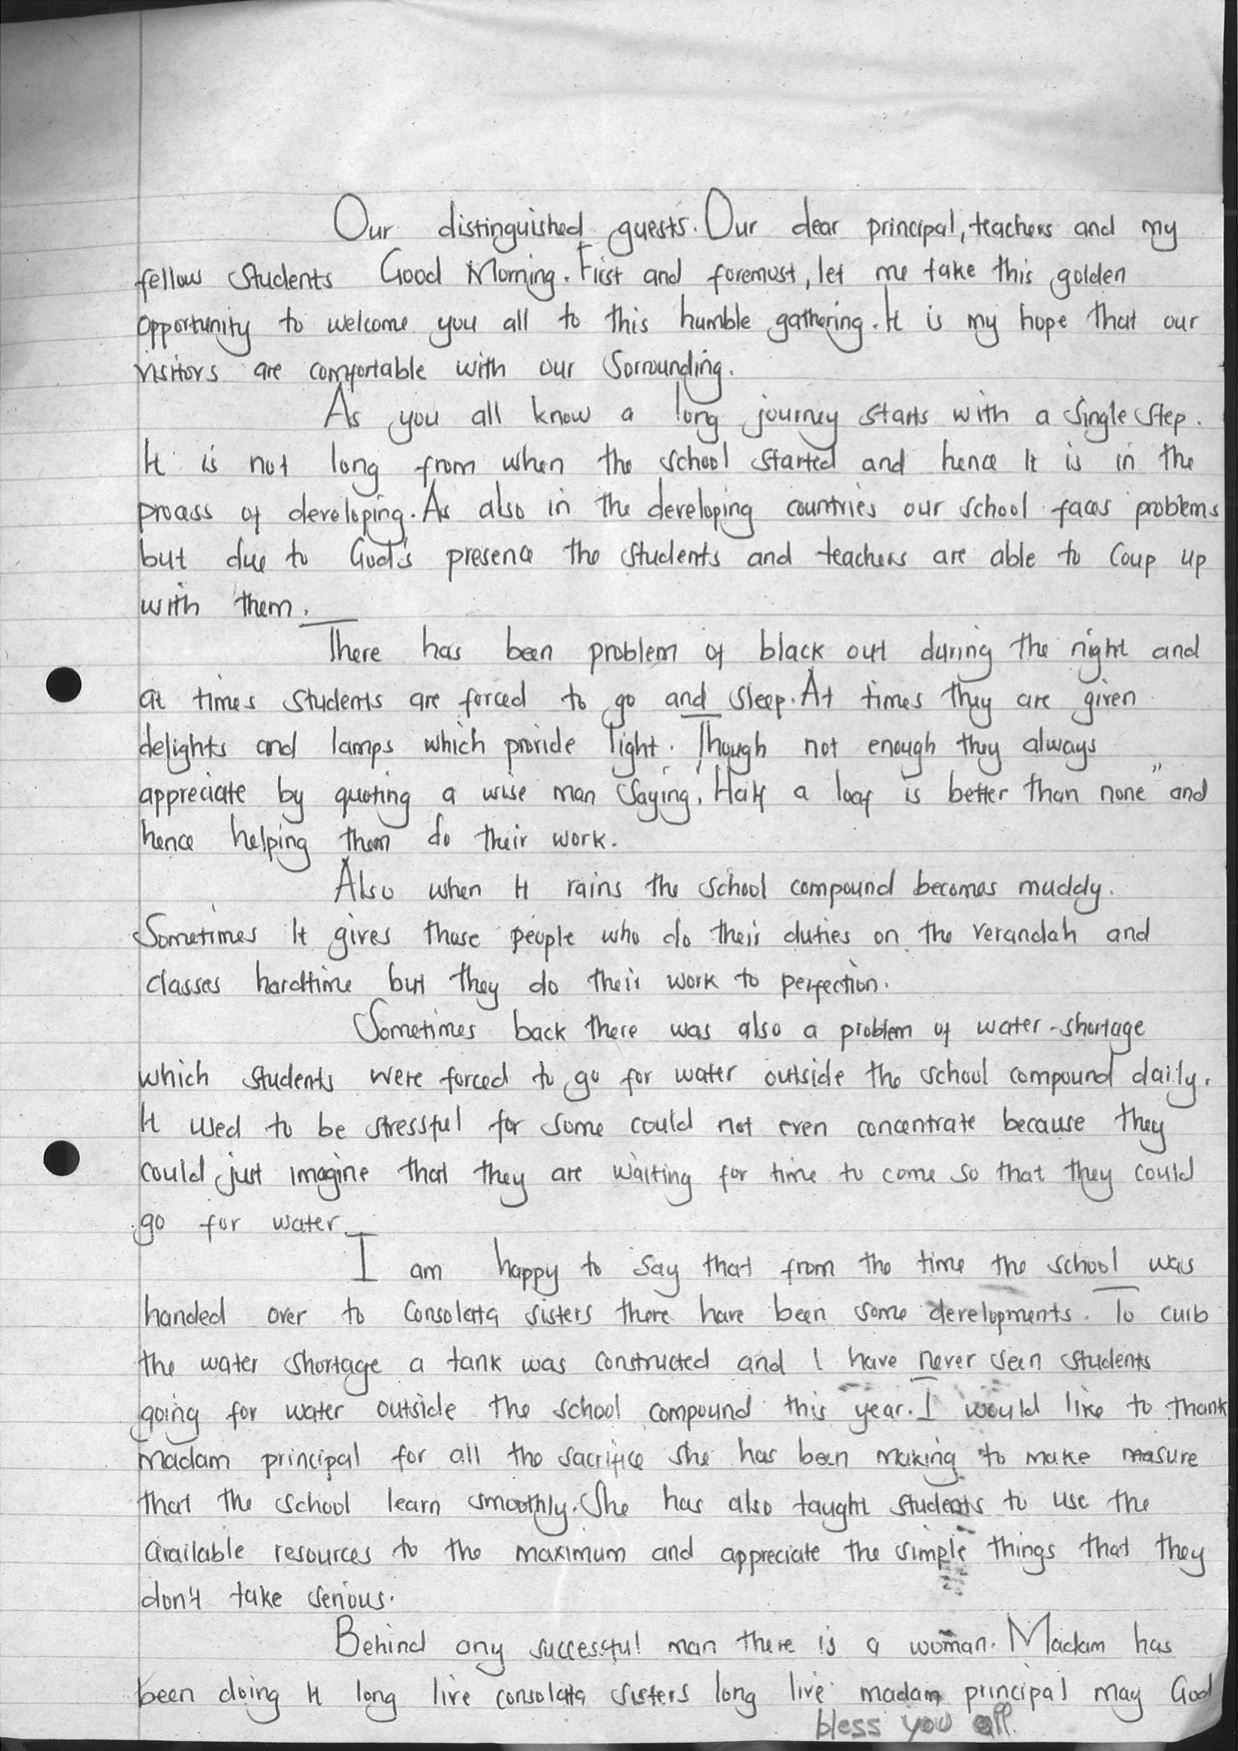 Our distinguished guests. Our dear principal, teachers and my
fellow students Good Morning. First and foremost, let me take this golden
opportunity to welcome you all to this humble gathering. It is my hope that our
visitors are comfortable with our sorrounding.
As you all know a long journey starts with a single step.
It is not long from when the school started and hence it is in the
process of developing. As also in the developing countries our school faces problems
but due to God's presence the students and teachers are able to coup up
with them.
There has been problem of black out during the night and
at times students are forced to go and sleep. At times they are given
delights and lamps which provide light. Though not enough they always
appreciate by quoting a wise man saying, "Half a loaf is better than none" and
hence helping them do their work.
Also when it rains the school compound becomes muddy.
Sometimes it gives those people who do their duties on the verandah and
classes hardtime but they do their work to perfection.
Sometimes back there was also a problem of water-shortage
which students were forced to go for water outside the school compound daily.
It used to be stressful for some could not even concentrate because they
could just imagine that they are waiting for time to come so that they could
go for water.
I am happy to say that from the time the school was
handed over to Consolata sisters there have been some developments. To curb
the water shortage a tank was constructed and I have never seen students
going for water outside the school compound this year. I would like to thank
madam principal for all the sacrifice she has been making to make measure
that the school learn smoothly. She has also taught students to use the
available resources to the maximum and appreciate the simple things that they
don't take serious.
Behind any successful man there is a woman. Madam has
been doing it long live consolata sisters long live madam principal may God
bless you all.